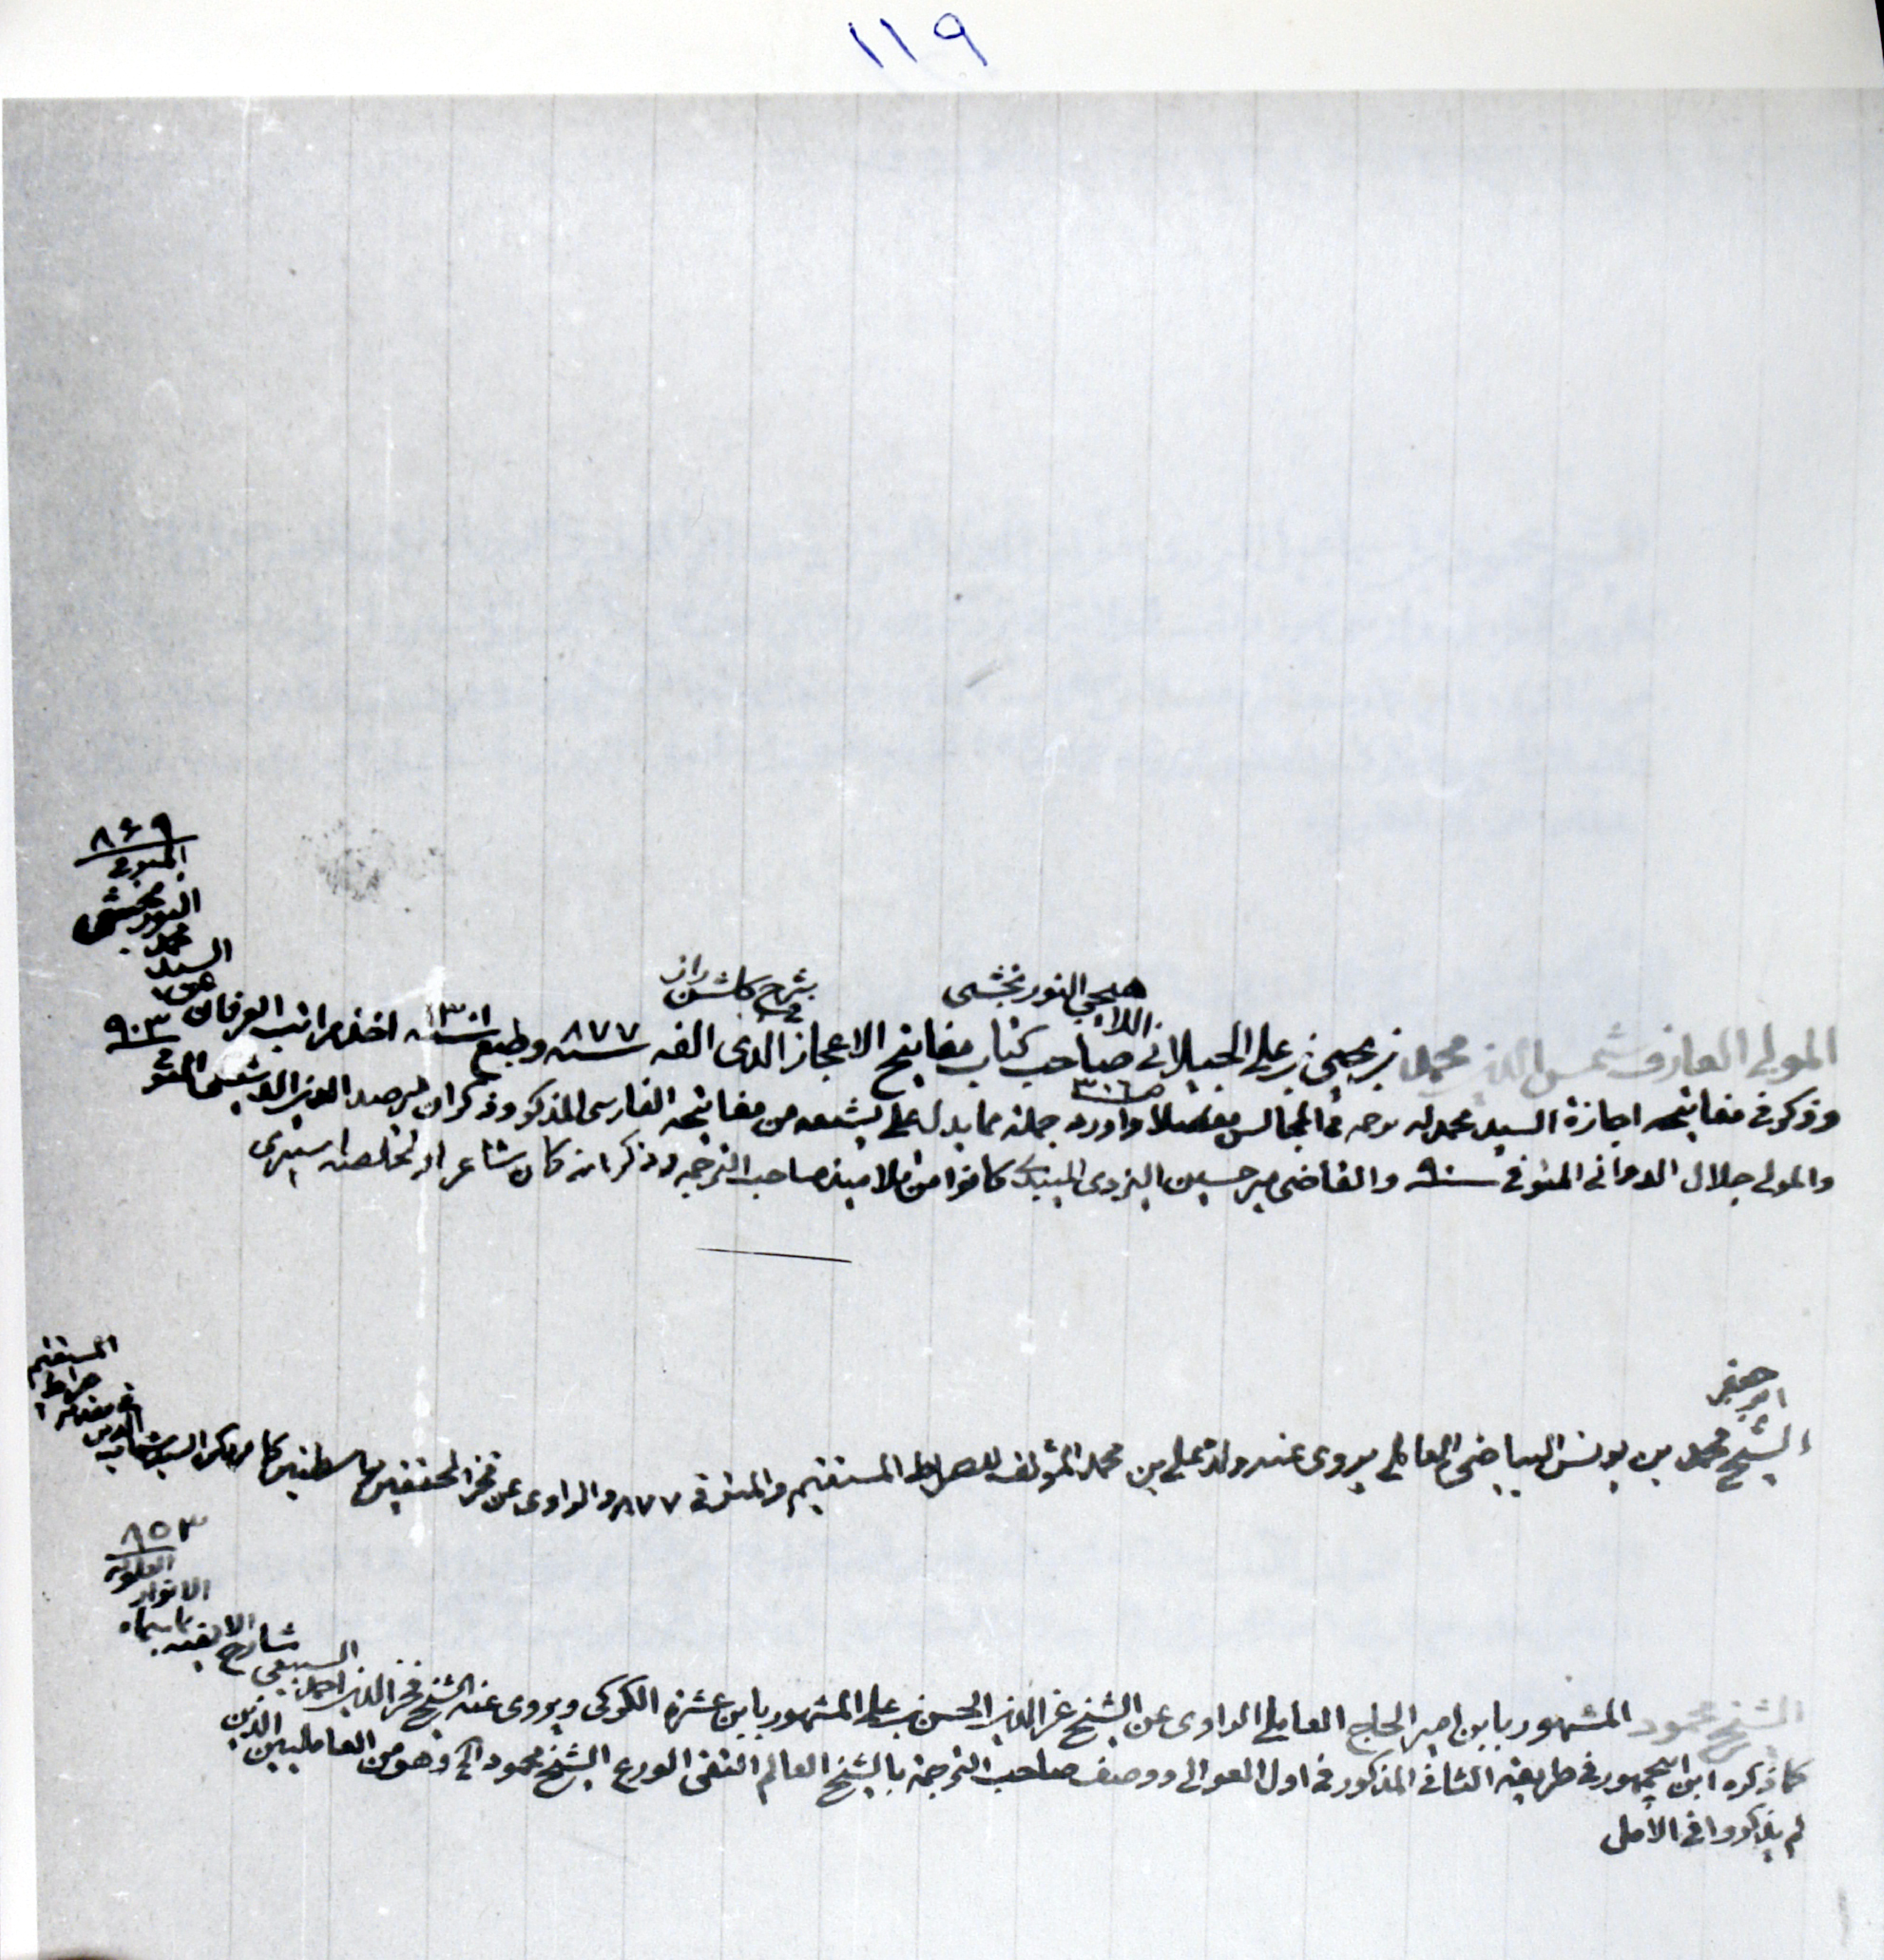 ١١٩
المولى العارف شمس الدين محمد بن يحيى بن علي الجيلاني اللاهيجي النوربخشي صاحب كتاب مفاتيح الاعجاز في شرح گلشن راز الذي الفه سنه ٨٧٧ وطبع سنه ١٣٠١ اخذ مراتب العرفان
عن السيد محمد النوربخشي المتوفى ٨٦٩
وذكر في مفاتيحه اجازة السيد محمد له ترجمه في المجالس ص ٣٠٦ مفصلا واورد جملة مما يدل على تشيعه من مفاتيحه الفارسي المذكور وذكر ان المير صدر الدين الدشتكي المتوفى ٩٠٣
والمولى جلال الدواني المتوفى سنه ٩٠ والقاضي مير حسين اليزدي الميبدي كانوا من تلاميذ صاحب الترجمه وذكر انه كان شاعرا تخلصه اسيري
الشيخ ابو جعفر محمد بن يونس البياضي العاملي يروى عنه ولده علي بن محمد المؤلف للصراط المستقيم والمتوفى ٨٧٧ والراوى عن فخر المحققين بواسطتين كما ذكر السيد شهاب الدين
في مقدمة الصراط المستقيم
الشيخ محمود المشهور بابن امير الحاج العاملي الراوى عن الشيخ عز الدين الحسن بن علي المشهور بابن عشرة الكركي ويروى عنه الشيخ فخر الدين احمد السبيعي شارح الالفيه
بما سماه الانوار العلويه ٨٥٣
كما ذكره ابن ابي جمهور في طريقه الثاني المذكور في اول العوالي ووصف صاحب الترجمة بالشيخ العالم التقي الورع الشيخ محمود الخ وهو من العامليين الذين
لم يذكروا في الامل